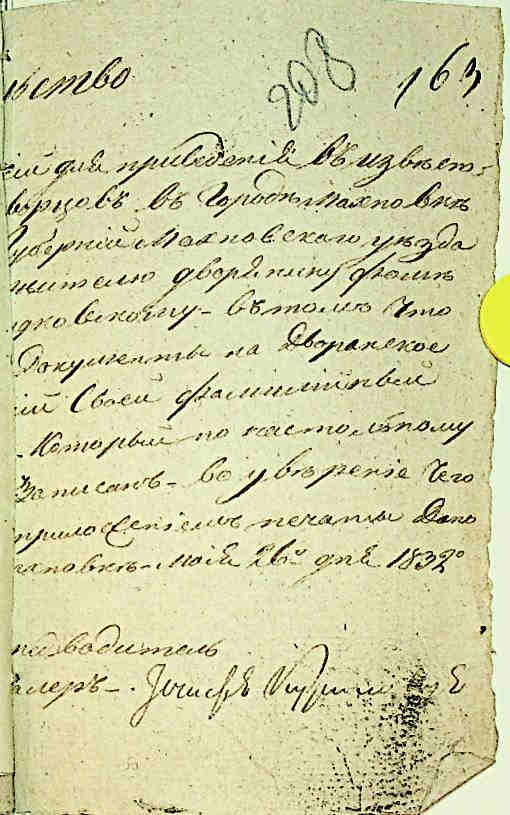 208
163
ьство
для приведенiй въ извѣст-
ворцовъ въ городѣ Махновкѣ
губернiй Махновскаго уѣзда
жителю дворянину Фомѣ
дковскому - въ томъ что
Документы на Дворянское
iй своей фамилiи
Который по настольному
Записанъ - во увѣренiе чего
приложенiемъ печати Дано
махновкѣ - Маiя 26го дня 1832го
водитель
алеръ -